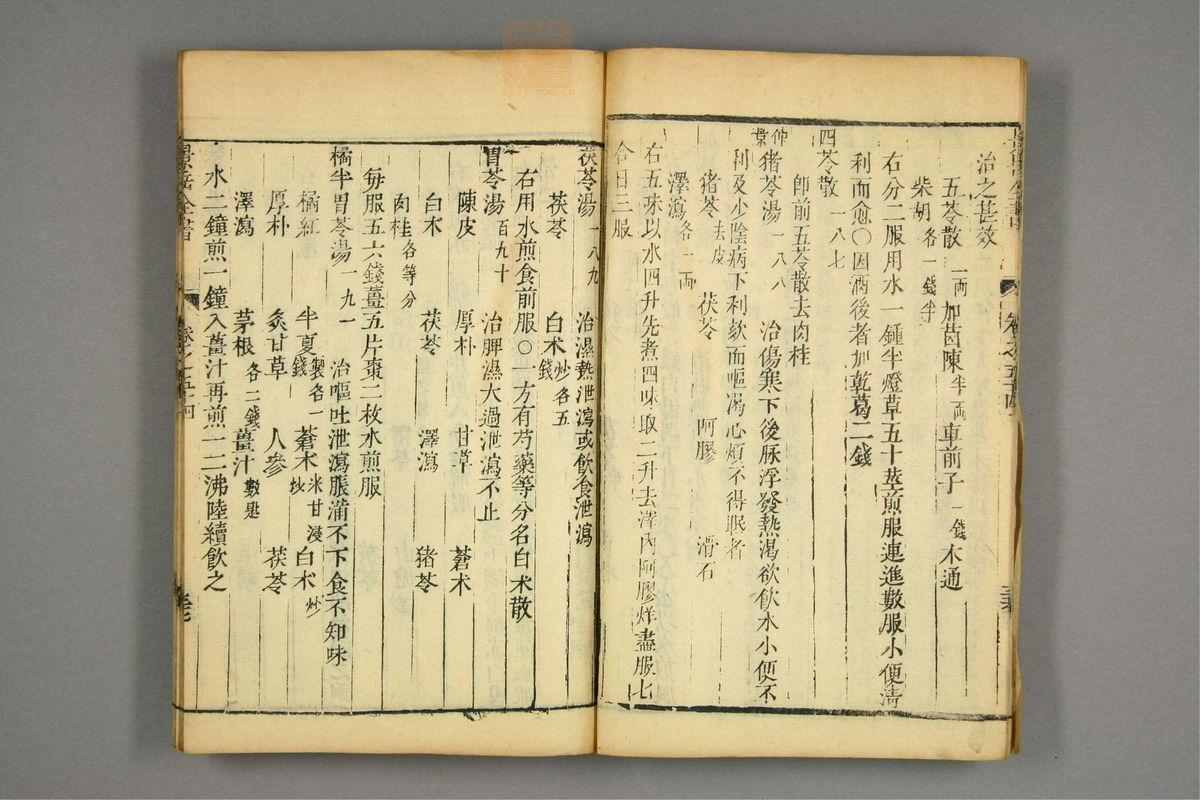 治之甚效
五苓散一兩 加茵陳半兩 車前子一錢 木通
柴胡各一錢半
右分二服用水一鍾半燈草五十莖煎服連進數服小便清
利而愈〇因酒後者加乾葛二錢
四苓散一八七
即前五苓散去肉桂
仲景猪苓湯一八八 治傷寒下後脉浮發熱渴欲飲水小便不
利及少陰病下利欬而嘔渴心煩不得眠者
猪苓去皮 茯苓 阿膠 滑石
澤瀉各一兩
右五味以水四升先煮四味取二升去滓内阿膠烊盡服七
合日三服
茯苓湯一八九 治濕熱泄瀉或飲食泄瀉
茯苓 白术炒各五錢
右用水煎食前服〇一方有芍藥等分名白术散
胃苓湯百九十 治脾濕太過泄瀉不止
陳皮 厚朴 甘草 蒼术
白术 茯苓 澤瀉 猪苓
肉桂各等分
每服五六錢薑五片棗二枚水煎服
橘半胃苓湯一九一 治嘔吐泄瀉脹滿不下食不知味
橘紅 半夏製各一錢 蒼术米甘浸炒 白术炒
厚朴 炙甘草 人參 茯苓
澤瀉 茅根各二錢 薑汁數匙
水二鐘煎一鐘入薑汁再煎一二沸陸續飲之
景岳全書 卷之五十四